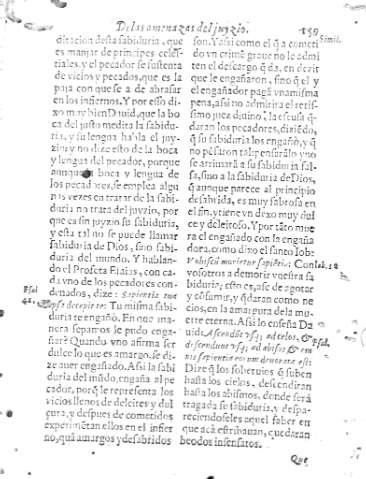 De las amenazas del juyzio. 159
ditacion desta sabiduria, que
es manjar de principes celes-
tiales, y el pecador se sustenta
de vicios y pecados, que es la
paja con que se a de abrasar
en los infiernos. Y por esso di-
xo muy bien Dauid, que la bo
ca del justo medita la sabidu-
ria, y su lengua habla el juy-
zio: y no dize esto de la boca
y lengua del pecador, porque
aunque la boca y lengua de
los pecadores, se emplea algu
nas vezes en tratar de la sabi-
duria no trata del juyzio, por
que es sin juyzio su sabiduria,
y esta tal no se puede llamar
sabiduria de Dios, sino sabi-
duria del mundo. Y hablan-
do el Profeta Esaias, con ca-
da vno de los pecadores con-
denados, dize: Sapientia tua
ipse decepit te: Tu misma sabi
duria te engañó. En que ma-
nera sepamos le pudo enga-
ñar? Quando vno afirma ser
dulce lo que es amargo, se di-
ze auer engañado. Assi la sabi
duria del mũdo, engaña al pe
cador, porq̃ le representa los
vicios llenos de deleites y dul
çura, y despues de cometidos
experimẽtan ellos en el infier
no, quã amargos y desabridos
son. Y assi como el q̃ a cometi
do vn crimẽ graue no le admi
ten el descargo q̃ da, en dezir
que le engañaron, sino q̃ el y
el engañador pagã vna misma
pena, assi no admitira el retis-
simo juez diuino, la escusa q̃
daran los pecadores, diziẽdo,
q̃ su sabiduria los engañó, y q̃
no pẽsaron tal: pensarãlo vno
se arrimarã a su sabiduria fal-
sa, sino a la sabiduria de Dios,
q̃ aunque parece al principio
desabrida, es muy sabrosa en
el fin, y tiene vn dexo muy dul
ce y deleitoso. Y por tãto mue
ra el engañado con la engaña
dora, como dixo el santo Iob:
Vobiscũ morietur sapiẽtia: Con
vosotros a de morir vuestra sa
biduria; esto es, a se de agotar
y cõsumir, y q̃daran como ne
cios, en la amargura de la mu-
erte eterna. Assi lo enseña Da
uid: Ascendũt vsq; ad celos, &
descendunt vsq; ad abisos & om
nis sapientia eorum deuorata est:
Dize q̃ los soberuios q̃ suben
hasta los cielos, descendiran
hasta los abismos, donde será
tragada su sabiduria, y despa-
reciendoseles aquel saber en
que acã estribauan, quedaran
beodos insensatos.
Que
Simil.
Iob. 18
Psal.
Psal.
44.